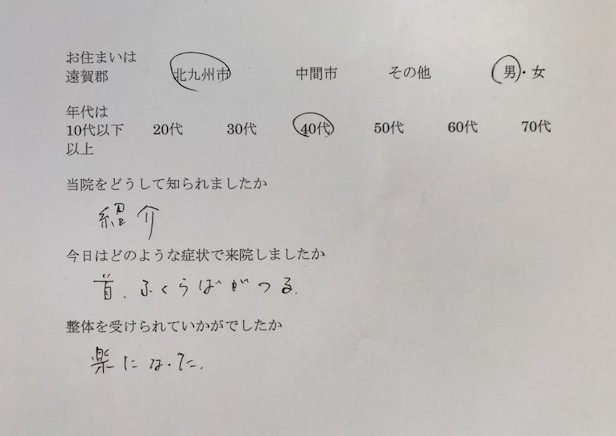 お住まいは
遠賀郡 北九州市 中間市 その他 男・女
年代は
10代以下 20代 30代 40代 50代 60代 70代
以上
当院をどうして知られましたか
紹介
今日はどのような症状で来院しましたか
首、ふくらはぎがつる。
整体を受けられていかがでしたか
楽になった。